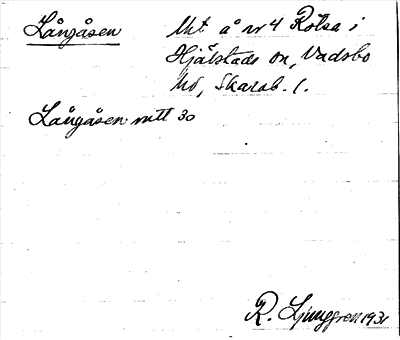 Långåsen Utt å nr 4 Rölsa i
Hjälstads sn, Vadsbo
hd, Skarab. l.
Långåsen mtl 30
R. Ljunggren 1931